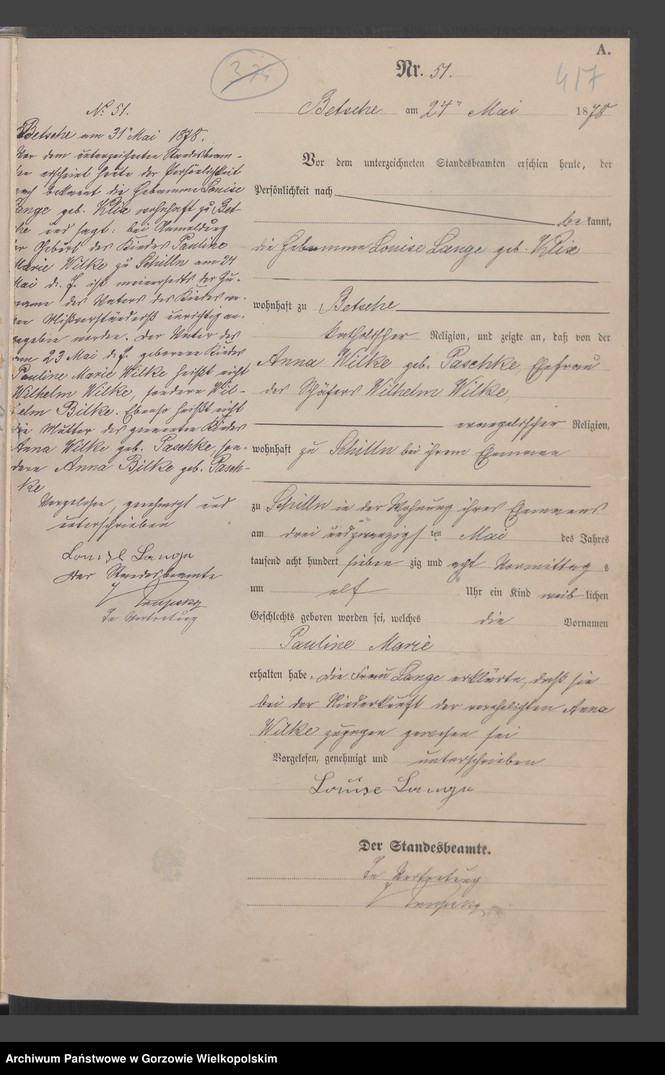 A.
Nr. 51.
417
375
Betsche am 24ten Mai 1878
Vor dem unterzeichneten Standesbeamten erschien heute, der
Persönlichkeit nach
be kannt,
die Hebamme Louise Lange geb. Klix
wohnhaft zu Betsche
katholischer Religion, und zeigte an, daß von der
Anna Wilke geb. Paschke, Ehefrau
des Schäfers Wilhelm Wilke,
evangelischer Religion,
wohnhaft zu Schilln bei ihrem Ehemanne
zu Schilln in der Wohnung ihres Ehemannes
am drei und zwanzigsten Mai des Jahres
tausend acht hundert sieben zig und acht Vormittag s
um elf Uhr ein Kind weib lichen
Geschlechts geboren worden sei, welches die Vornamen
Pauline Marie
erhalten habe. Die Frau Lange erklärte, daß sie
bei der Niederkunft der verehelichten Anna
Wilke zugegen gewesen sei
Vorgelesen, genehmigt und unterschrieben
Louise Lange
Der Standesbeamte.
In Vertretung
No 51.
Betsche am 31ten Mai 1878.
Vor dem unterzeichneten Standesbeam-
ten erscheint heute der Persönlichkeit
nach bekannt die Hebamme Louise
Lange geb. Klix wohnhaft zu Bet-
sche und sagt: bei Anmeldung
der Geburt des Kindes Pauline
Marie Wilke zu Schilln am 24
Mai d. J. ist meinerseits der Zu-
name des Vaters des Kindes
Mißverständniß unrichtig an-
gegeben worden. Der Vater des
am 23 Mai d. J. geborenen Kindes
Pauline Marie Wilke heißt nicht
Wilhelm Wilke, sondern Wil-
helm Bilke. Ebenso heißt nicht
die Mutter des genannten Kindes
Anna Wilke geb. Paschke son-
dern Anna Bilke geb. Pasch-
ke
Vorgelesen, genehmigt und
unterschrieben
Louise Lange
Der Standesbeamte
In Vertretung
Archiwum Państwowe w Gorzowie Wielkopolskim